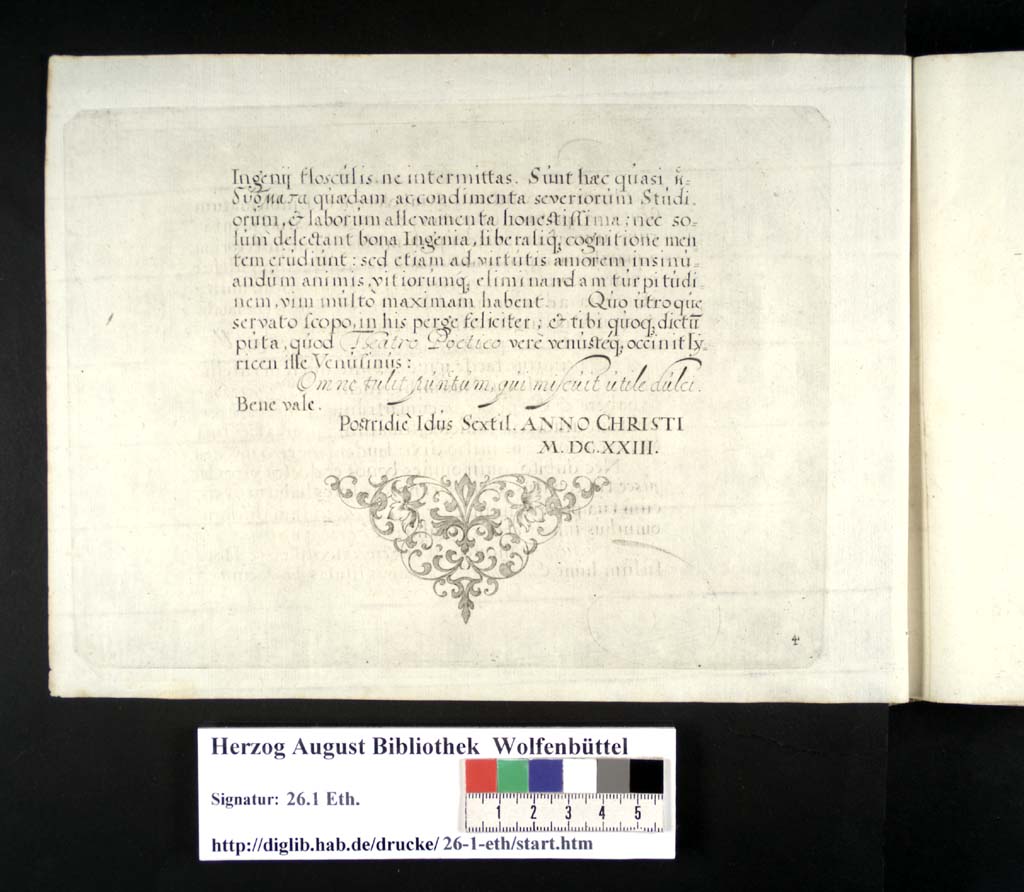 Ingenij flosculis ne intermittas. Sunt hæc quasi ἡ-
δύσματα quædam ac condimenta severiorum Studi-
orum, & laborum allevamenta honestissima; nec so-
lum delectant bona Ingenia, liberaliq; cognitione men
tem erudiunt: sed etiam ad virtutis amorem insinu-
andum animis, vitiorumq; eliminandam turpitudi-
nem, vim multò maximam habent. Quo utroque
servato scopo, in his perge feliciter; & tibi quoq; dictū
puta, quod Theatro Poetico verè venusteq; occinit Ly-
ricen ille Venusinus:
Omne tulit punctum, qui miscuit utile dulci.
Bene vale.
Postridiè Idus Sextil. ANNO CHRISTI
M. DC. XXIII.
4
Herzog August Bibliothek Wolfenbüttel
Signatur: 26.1 Eth.
1 2 3 4 5
http://diglib.hab.de/drucke/ 26-1-eth/start.htm